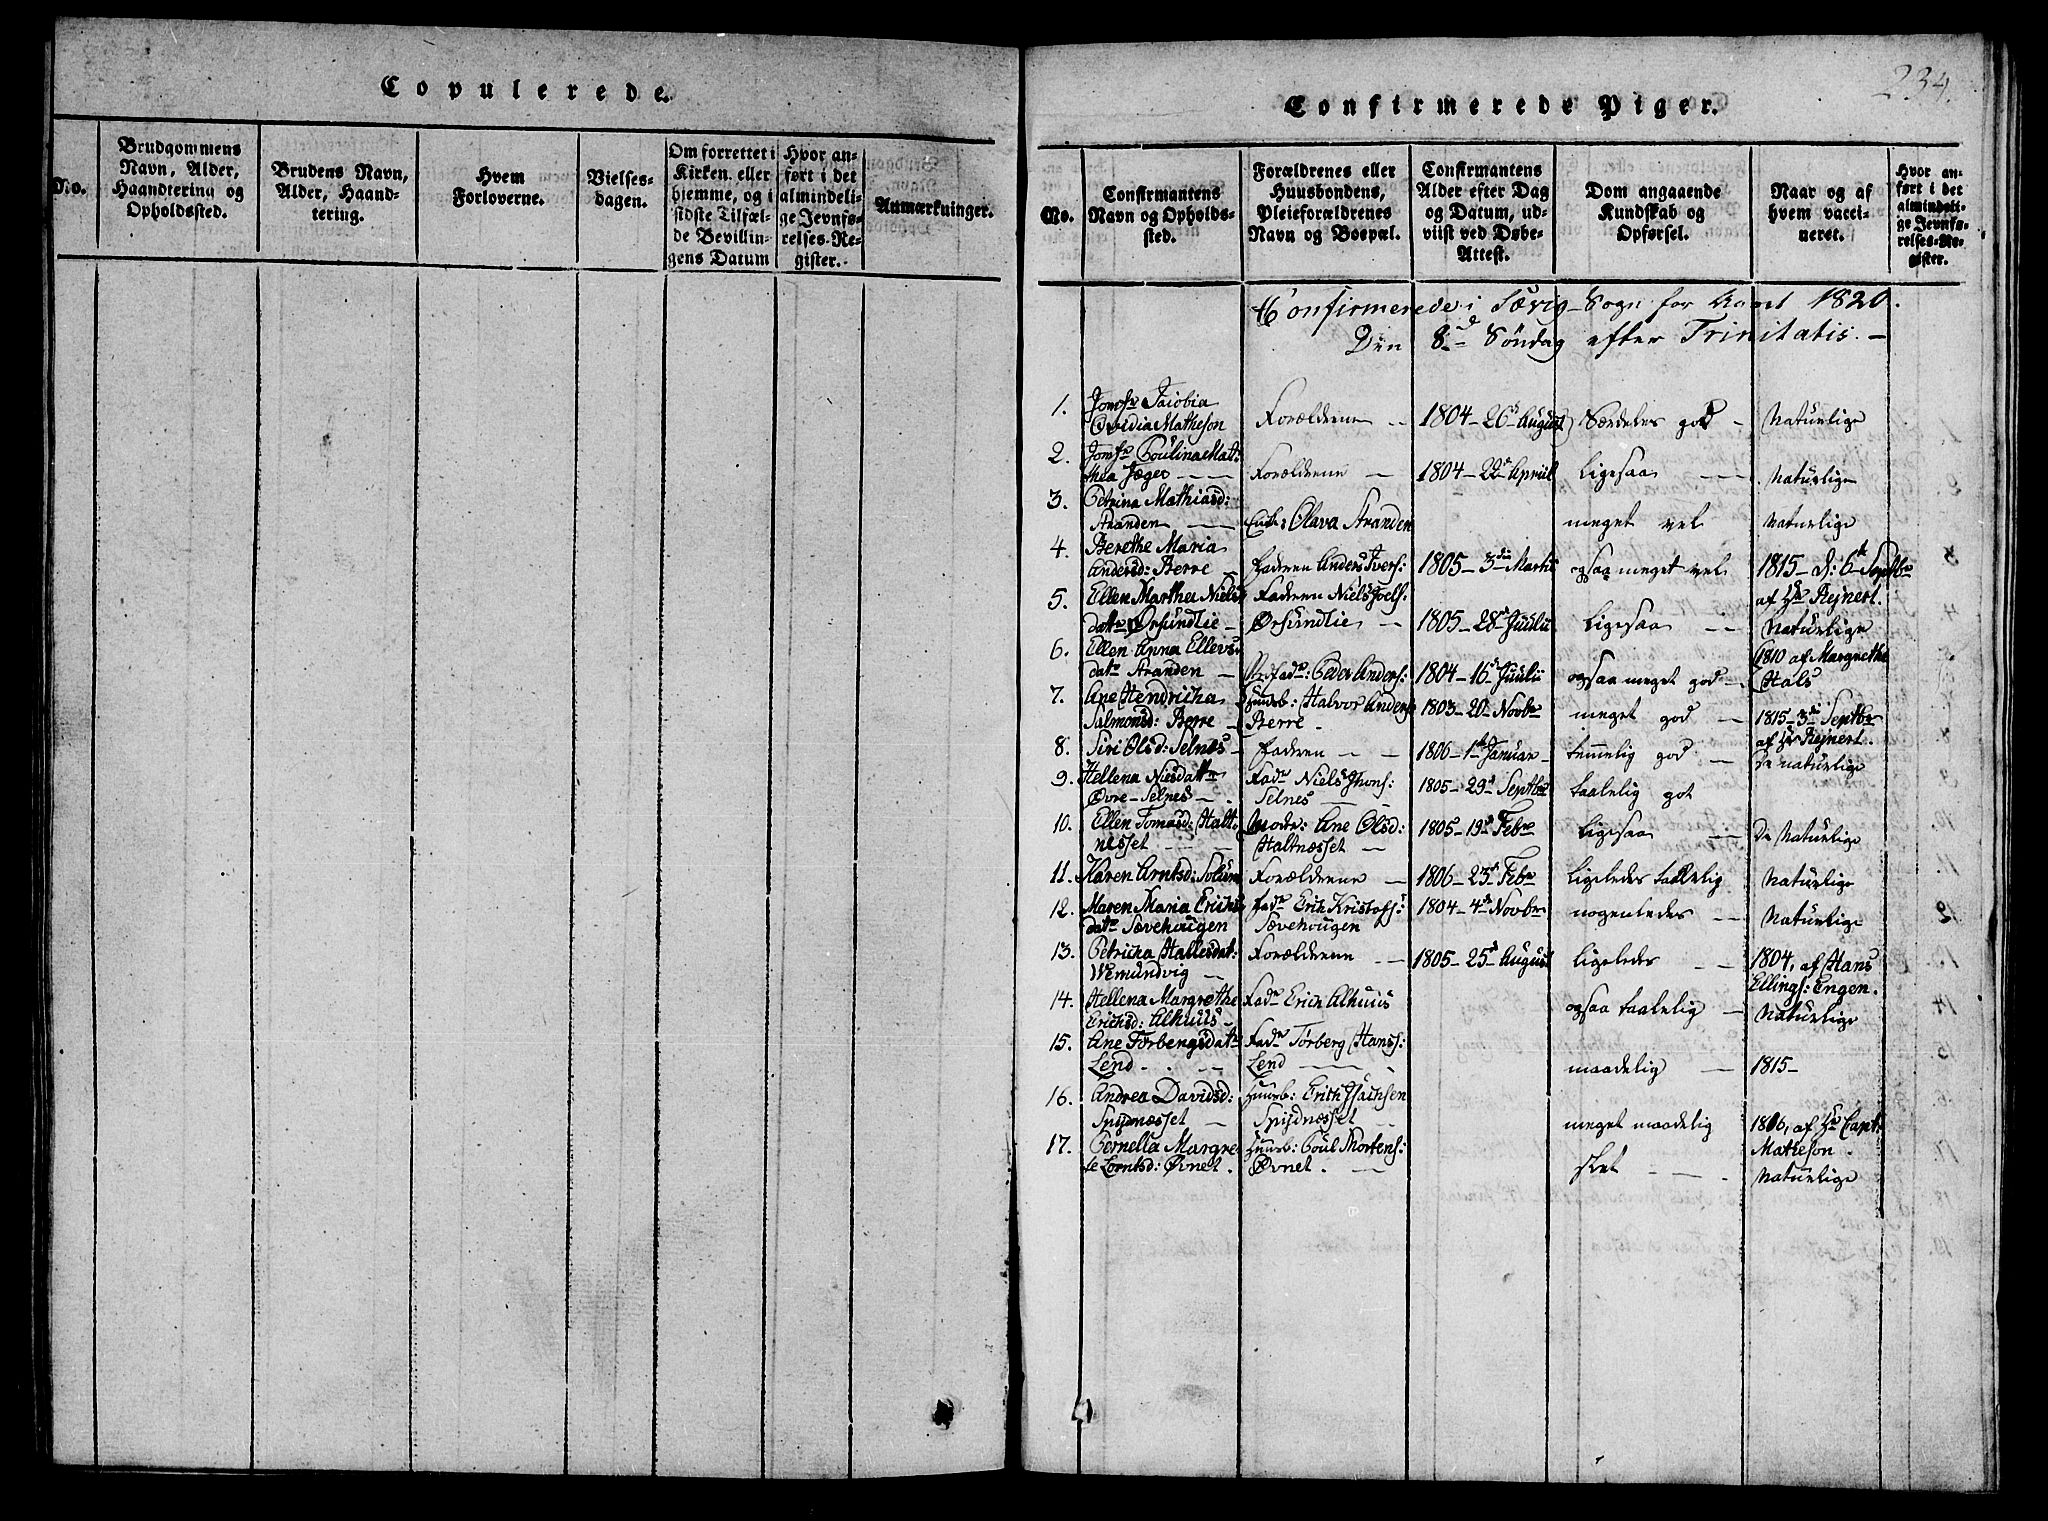 Copulerede.
No.
Brudgommens
Navn, Alder,
Haandtering og
Opholdssted.
Brudens Navn,
Alder, Haand-
tering.
Hvem
Forloverne.
Vielses-
dagen.
Om forrettet i
Kirken, eller
hiemme, og i
sidste Tilfæl-
de Bevillin-
gens Datum
Hvor an-
ført i det
almindeli-
ge Jevnfø-
relses-Re-
gister.
Anmærkninger.
234.
Confirmerede Piger.
No.
Confirmantens
Navn og Opholds-
sted.
Forældrenes eller
Huusbondens,
Pleieforældrenes
Navn og Boepæl.
Confirmantens
Alder efter Dag
og Datum, ud-
viist ved Døbe-
Attest.
Dom angaaende
Kundskab og
Opførsel.
Naar og af
hvem vacci-
neret.
Hvor an-
ført i det
almindeli-
ge Jevnfø-
relses-Re-
gister.
Confirmerede i Særig-Sogn for Aaret 1820.
Den 8de Søndag efter Trinitatis. —
1. Jomfr Jaiobia
Ovidia Matheson Forældrene -- 1804 - 26d August Særdeles god - Naturlige
2. Jomfr Poulina Mat-
thea Jæger Forældrene - 1804 - 22d Apriil Ligesaa -- Naturlige
3. Petrina Mathiasd:
Stranden Enk: Olava Stranden meget vel Naturlige
4. Berethe Maria
Andersd: Berre Faderen Anders Ivers: 1805 - 3die Martii ogsaa meget vel 1815 - d: 6te Septbr
af Hr Rejnert.
5. Ellen Marthea Niels
datr Ørsundlie Faderen Niels Joels:
Ørsundlie -- 1805 - 28d Juulii Ligesaa -- Naturlige
6. Ellen Anna Ellevs-
datr Stranden - Stiffadr: Peder Anders: 1804 - 16d Juulii ogsaa meget god - 1810 af Margrethe
Hals
7. Ane Hendricha
Salmonsd: Berre Huusb: Halvor Anders
Berre - 1803 - 20d Novbr meget god - 1815 - 3die Septbr
af Hr Rejnert.
8. Siri Olsd: Selnes - Faderen - - 1806 - 1te Januar - temmelig god - De naturlige
9. Hellena Nielsdattr
Øvre-Selnes -. Fadr Niels Jhons:
Selnes 1805 - 29d Septbr taalelig got
10. Ellen Tomasd: Halt-
nesset Moder: Ane Olsd:
Haltnæsset - 1805 - 19d Febr Ligesaa -- De Naturlige
11. Karen Arntsd: Solum Forældrene - 1806 - 23d Febr Ligeledes taalelig Naturlige
12. Maren Maria Erichs
datr Sævehougen Fadr Erik Kristofs:
Sævehougen 1804 - 4de Novbr nogenledes -- Naturlige
13. Petricha Hallesdat:
Wemundvig - Forældrene -- 1805 - 25d August Ligeledes -- 1804, af Hans
Ellings: Engen.
14. Hellena Margrethe
Erichsd: Alhuus - Fadr Erich Alhuus ogsaa taalelig - Naturlige
15. Ane Torbergsdatr
Lend. . -- Fadr Torberg Hans:
Lend maadelig - 1815 -
16. Andrea Davidsd:
Spijdnæsset - Huusb: Erich Isachsen
Spijdnæsset meget maadelig 1806, af Hr Capt:
Matheson.
17. Pernella Margre-
te Lorntsd: Øvnet. Huusb: Poul Mortens:
Øvnet. - slet - - Naturlige